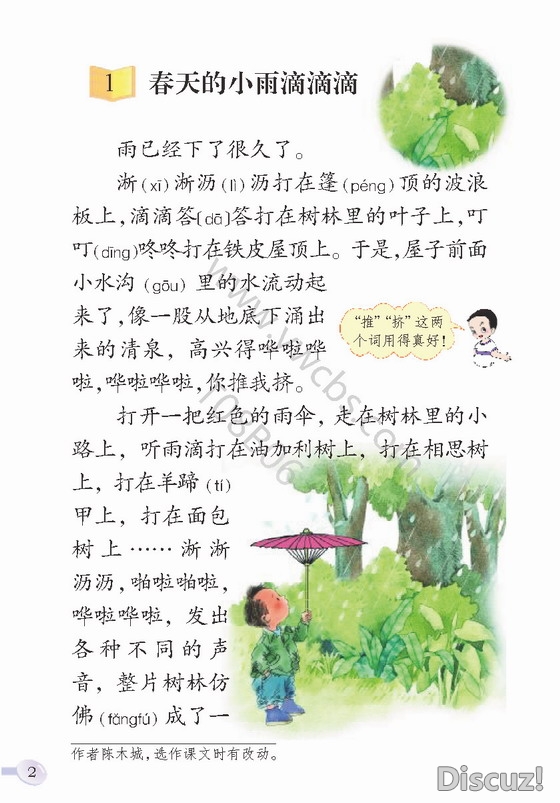 1 春天的小雨滴滴滴
雨已经下了很久了。
淅(xī)淅沥(lì)沥打在篷(péng)顶的波浪
板上,滴滴答(dā)答打在树林里的叶子上,叮
叮(dīng)咚咚打在铁皮屋顶上。于是,屋子前面
小水沟(gōu)里的水流动起
来了,像一股从地底下涌出
来的清泉,高兴得哗啦哗
啦,哗啦哗啦,你推我挤。
“推”“挤”这两
个词用得真好!
打开一把红色的雨伞,走在树林里的小
路上,听雨滴打在油加利树上,打在相思树
上,打在羊蹄(tí)
甲上,打在面包
树上……淅淅
沥沥,啪啦啪啦,
哗啦哗啦,发出
各种不同的声
音,整片树林仿
佛(fǎngfú)成了一
作者陈木城,选作课文时有改动。
2
Discuz!